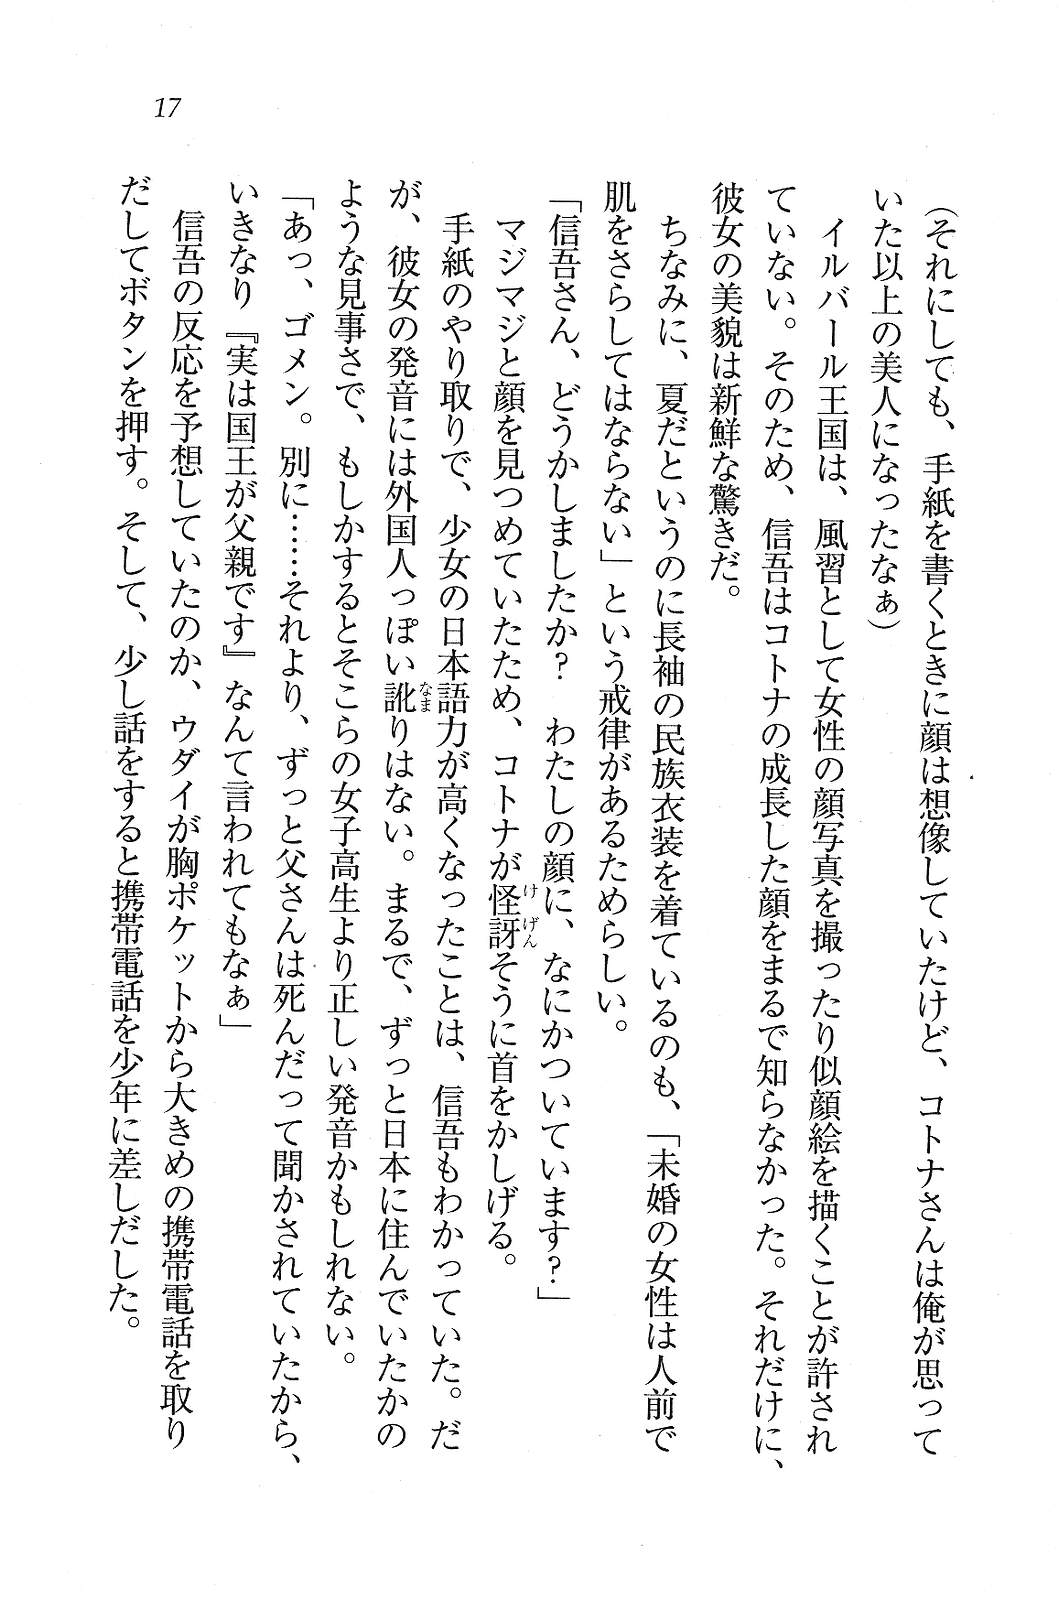 17
（それにしても、手紙を書くときに顔は想像していたけど、コトナさんは俺が思って
いた以上の美人になったなぁ）
イルバール王国は、風習として女性の顔写真を撮ったり似顔絵を描くことが許され
ていない。そのため、信吾はコトナの成長した顔をまるで知らなかった。それだけに、
彼女の美貌は新鮮な驚きだ。
ちなみに、夏だというのに長袖の民族衣装を着ているのも、「未婚の女性は人前で
肌をさらしてはならない」という戒律があるためらしい。
「信吾さん、どうかしましたか？　わたしの顔に、なにかついています？」
マジマジと顔を見つめていたため、コトナが怪訝そうに首をかしげる。
手紙のやり取りで、少女の日本語力が高くなったことは、信吾もわかっていた。だ
が、彼女の発音には外国人っぽい訛りはない。まるで、ずっと日本に住んでいたかの
ような見事さで、もしかするとそこらの女子高生より正しい発音かもしれない。
「あっ、ゴメン。別に……それより、ずっと父さんは死んだって聞かされていたから、
いきなり『実は国王が父親です』なんて言われてもなぁ」
信吾の反応を予想していたのか、ウダイが胸ポケットから大きめの携帯電話を取り
だしてボタンを押す。そして、少し話をすると携帯電話を少年に差しだした。